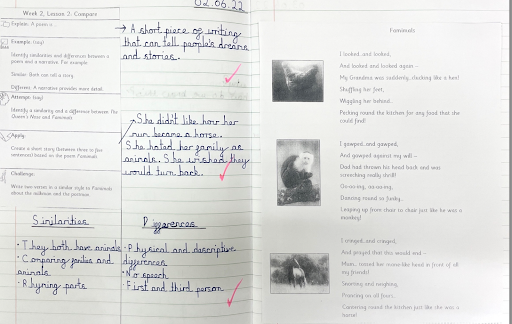 02.06.22
Week 2, Lesson 2, Compare
Explain: A poem is ...
Example: (you)
Identify similarities and differences between a
poem and a narrative. For example:
Similar: Both can tell a story.
Different: A narrative provides more detail.
Attempt: (you)
Identify a similarity and a difference between The
Queen's Nose and Fammals.
Apply:
Create a short story (between three to five
sentences) based on the poem Fammals.
Challenge:
Write two verses in a similar style to Fammals
about the milkman and the postman.
→ A short piece of writing
that can tell people's dreams
and stories.
She didn't like how her
mum became a horse.
She hated her family as
animals. She wished they
would turn back.
Similarities
· They both have animals
· Comparing families and
animals
· Rhyming parts
Differences
· Physical and descriptive
differences
· No speech
· First and third person
Fammals
I looked, and looked,
And looked and looked again –
My Grandma was suddenly, clucking like a hen!
Shuffling her feet,
Wiggling her behind,
Pecking round the kitchen for any food that she
could find!
I gawped, and gawped,
And gawped against my will –
Dad had thrown his head back and was
screeching really shrill!
Oo-aa, oo-aa-aa,
Dancing round in funky,
Leaping up from chair to chair just like he was a
monkey!
I cringed, and cringed,
And prayed that this would end –
Mum, tossed her mane-like head in front of all
my friends!
Snorting and neighing,
Prancing on all fours,
Cantering round the kitchen just like she was a
horse!